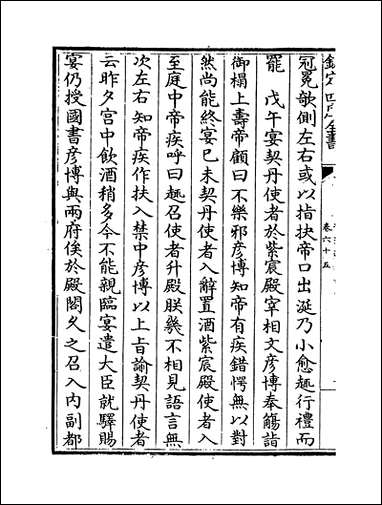 欽定四庫全書
卷六十五
冠冕欹側左右或以指抉帝口出涎乃小愈趣行禮而
罷　戊午宴契丹使者於紫宸殿宰相文彥博奉觴詣
御榻上壽帝顧曰不樂邪彥博知帝有疾錯愕無以對
然尚能終宴己未契丹使者入辭置酒紫宸殿使者入
至庭中帝疾呼曰趣召使者升殿朕幾不相見語言無
次左右知帝疾作扶入禁中彥博以上旨諭契丹使者
云昨夕宮中飲酒稍多今不能親臨宴遣大臣就驛賜
宴仍授國書彥博與兩府俟於殿閣久之召入內副都